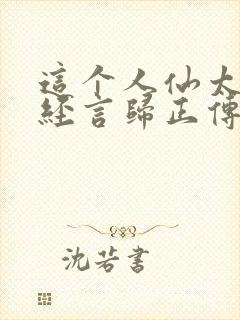 這个人仙太
經言歸正傳
沈若書